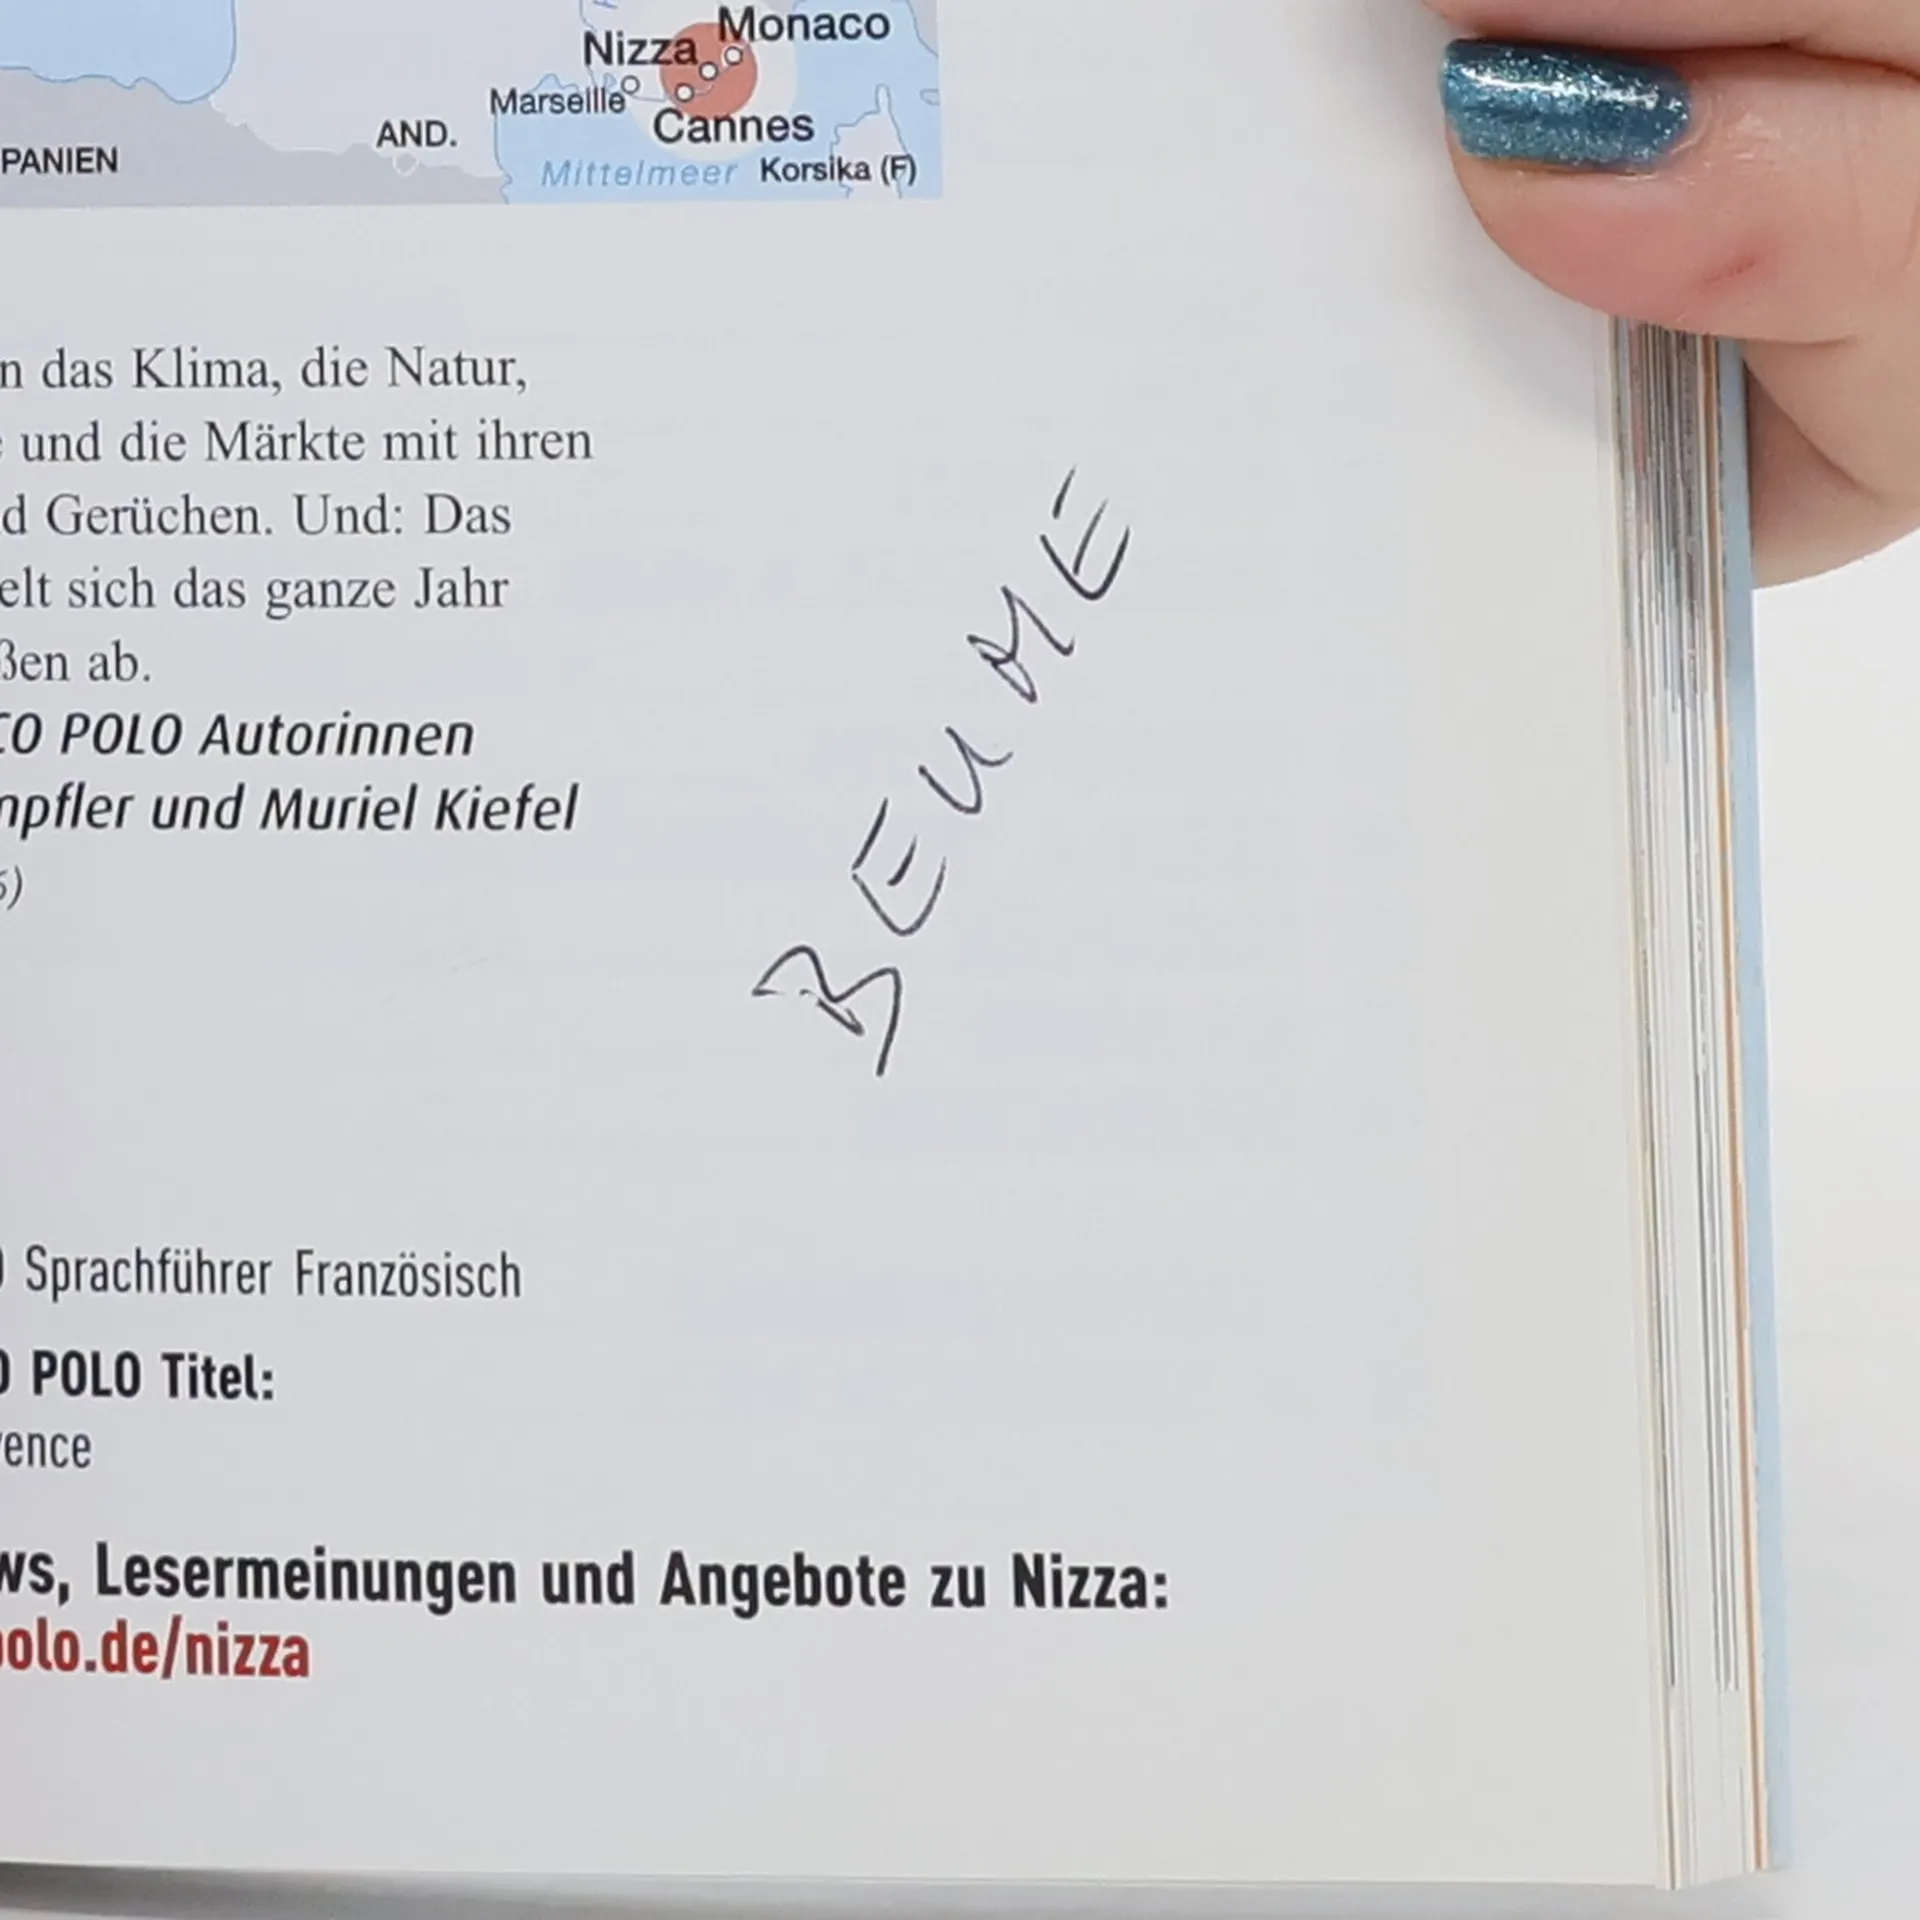 Monaco
Nizza
Marseille
AND.
Cannes
PANIEN
Mittelmeer Korsika (F)
n das Klima, die Natur,
e und die Märkte mit ihren
d Gerüchen. Und: Das
elt sich das ganze Jahr
ßen ab.
CO POLO Autorinnen
mpfler und Muriel Kiefel
5)
BEUME
O Sprachführer Französisch
O POLO Titel:
vence
ws, Lesermeinungen und Angebote zu Nizza:
polo.de/nizza